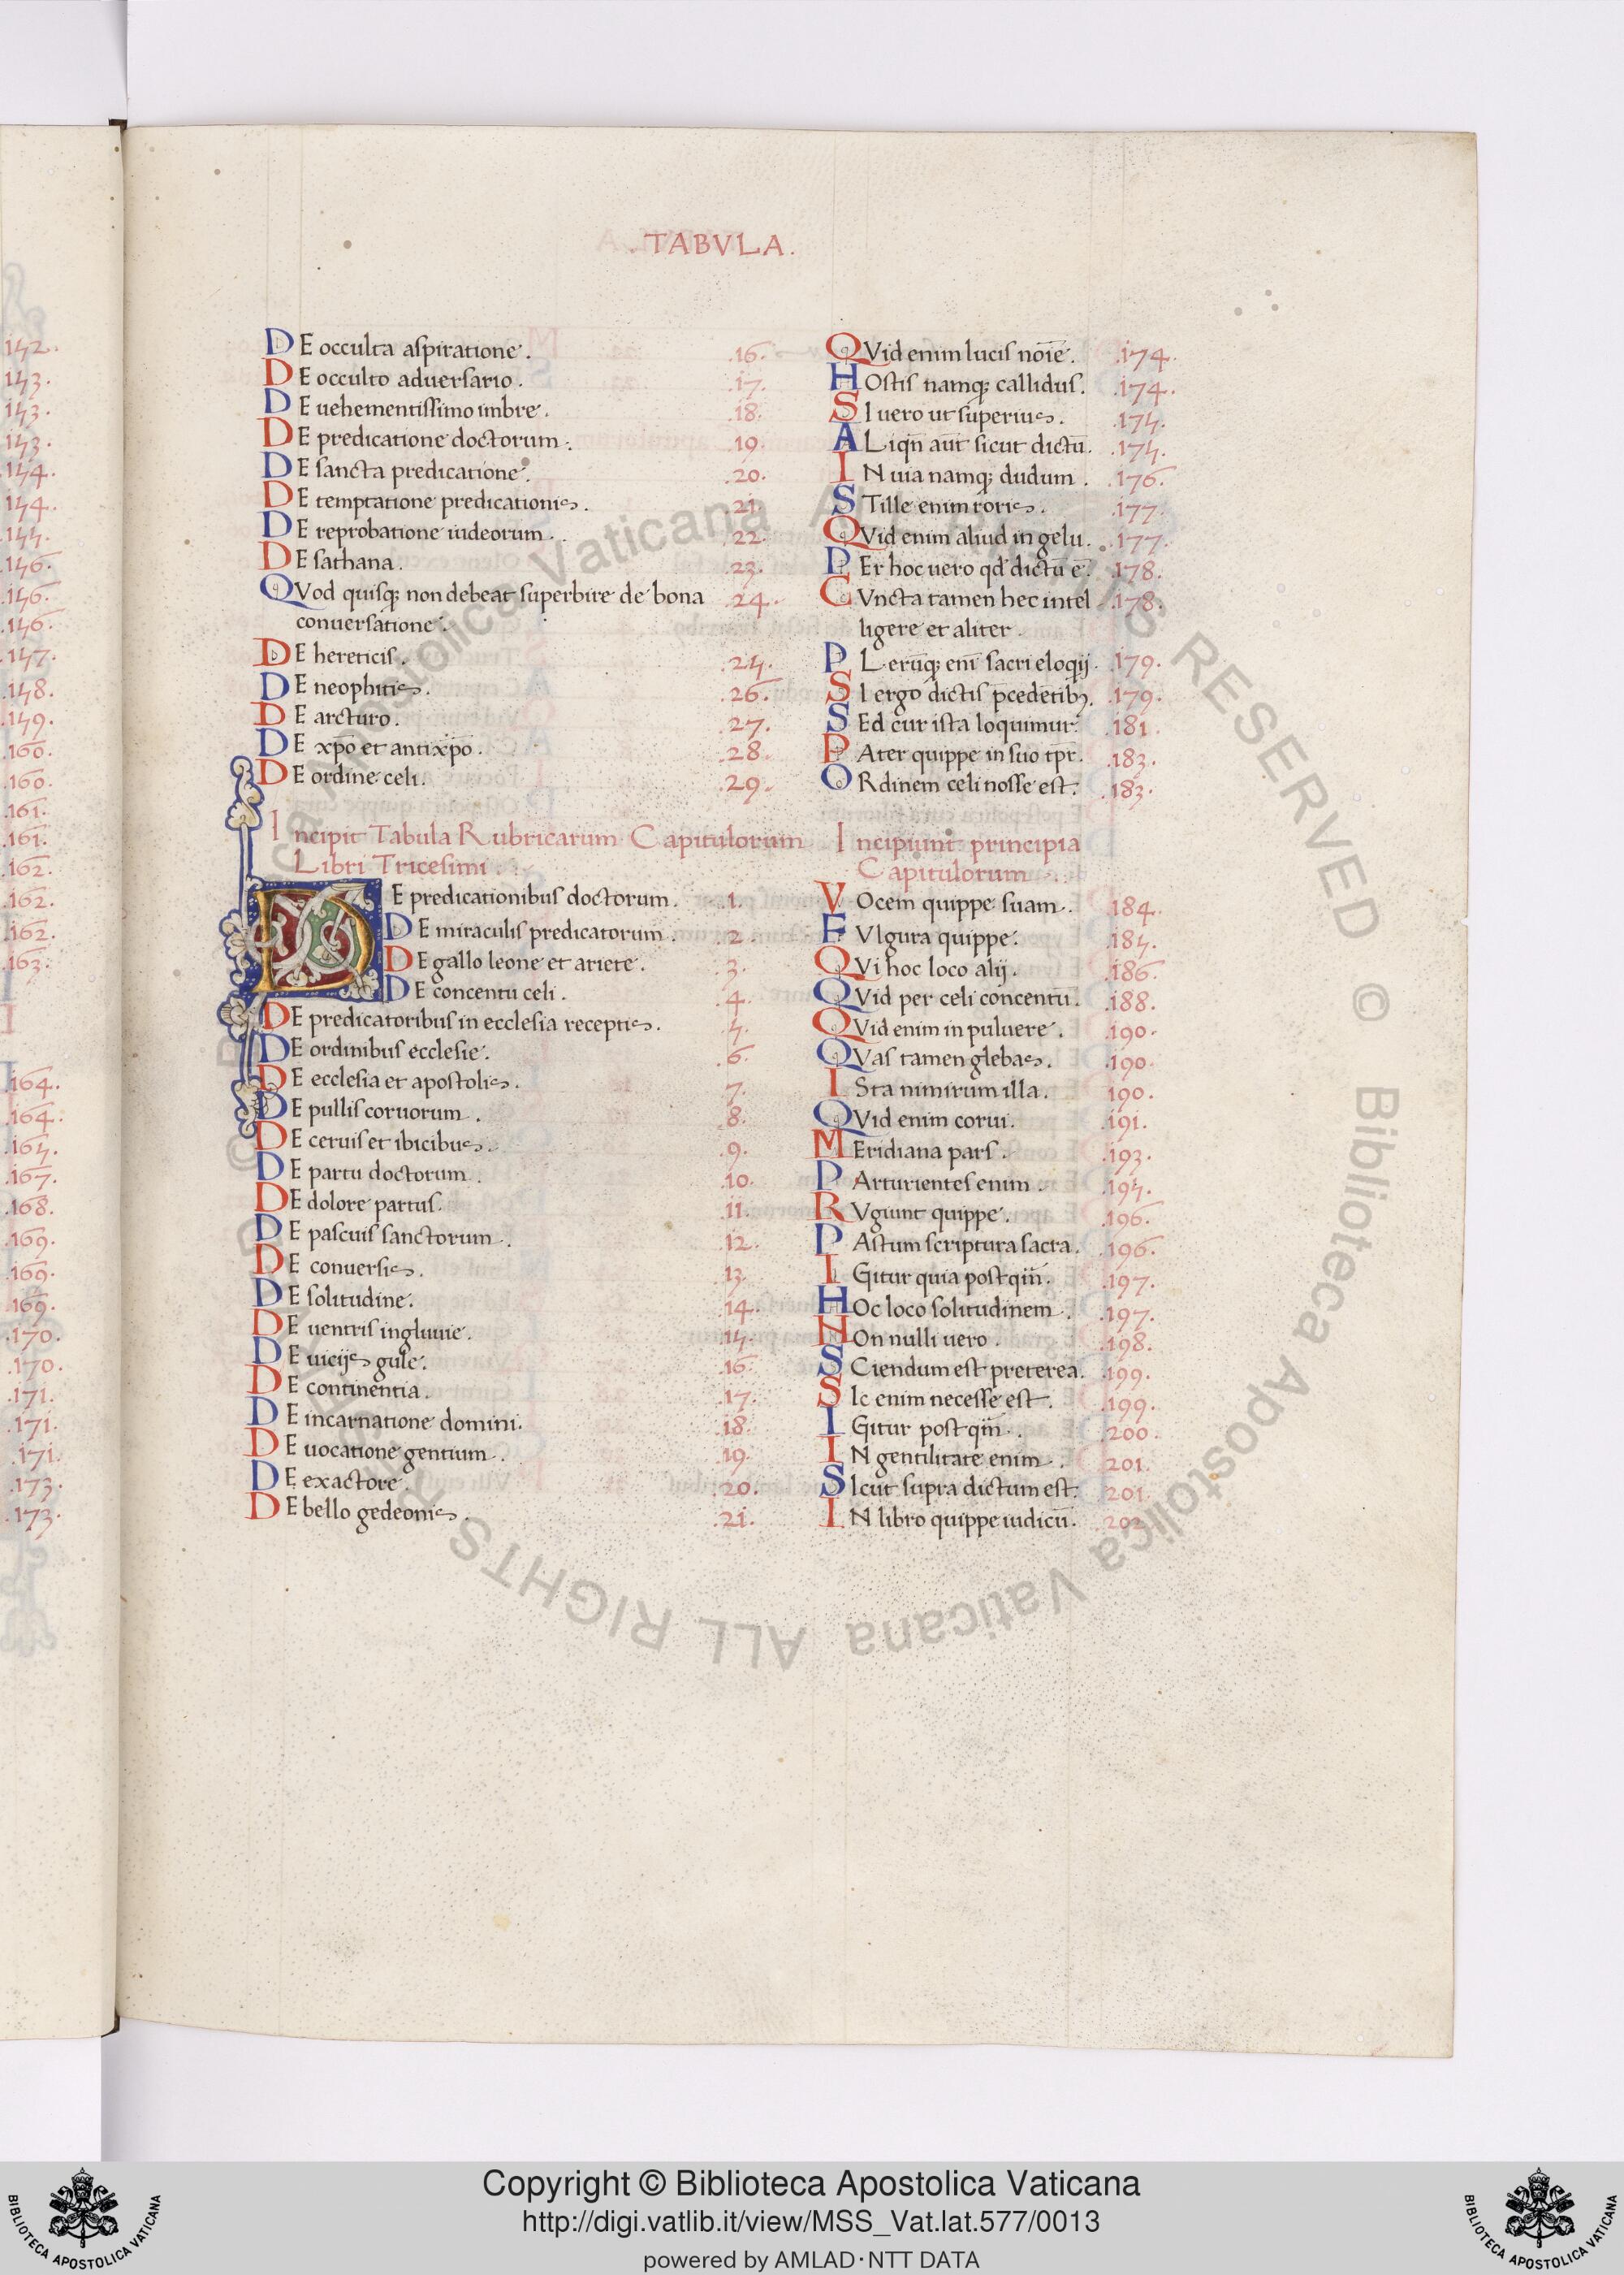 .TABVLA.
142.
143.
143.
143.
144.
144.
144.
146.
146.
146.
147.
148.
149.
160.
160.
161.
161.
162.
162.
162.
163.
164.
164.
164.
167.
168.
169.
169.
169.
170.
170.
171.
171.
171.
173.
173.
DE occulta aspiratione. .16.
DE occulto aduersario. .17.
DE uehementissimo imbre. .18.
DE predicatione doctorum. .19.
DE sancta predicatione. .20.
DE temptatione predicationis. .21.
DE reprobatione iudeorum. .22.
DE sathana. .23.
QVod quisq; non debeat superbire de bona .24.
conuersatione.
DE hereticis. .24.
DE neophitis. .26.
DE arcturo. .27.
DE xp̄o et antixp̄o. .28.
DE ordine celi. .29.
Incipit Tabula Rubricarum Capitulorum
Libri Tricesimi.
DE predicationibus doctorum. .1.
DE miraculis predicatorum. .2.
DE gallo leone et ariete. .3.
DE concentu celi. .4.
DE predicatoribus in ecclesia receptis. .4.
DE ordinibus ecclesie. .6.
DE ecclesia et apostolis. .7.
DE pullis coruorum. .8.
DE ceruis et ibicibus. .9.
DE partu doctorum. .10.
DE dolore partus. .11.
DE pascuis sanctorum. .12.
DE conuersis. .13.
DE solitudine. .14.
DE uentris ingluuie. .14.
DE uicijs gule. .16.
DE continentia. .17.
DE incarnatione domini. .18.
DE uocatione gentium. .19.
DE exactore. .20.
DE bello gedeonis. .21.
QVid enim lucis noīe. .174.
HOstis namq; callidus. .174.
SI uero ut superius. .174.
ALiqn̄ aut sicut dictū. .174.
IN uia namq; dudum. .176.
STille enim roris. .177.
QVid enim aliud in gelu. .177.
PEr hoc uero qd̄ dictū ē. .178.
CVncta tamen hec intel .178.
ligere et aliter.
PLerūq; enī sacri eloqij. .179.
SI ergo dictis p̄cedētibꝫ. .179.
SEd cur ista loquimur. .181.
PAter quippe in suo tp̄r. .183.
ORdinem celi nosse est. .183.
Incipiunt principia
Capitulorum
VOcem quippe suam. .184.
FVlgura quippe. .184.
QVi hoc loco alij. .186.
QVid per celi concentū. .188.
QVid enim in puluere. .190.
QVas tamen glebas. .190.
ISta nimirum illa. .190.
QVid enim corui. .191.
MEridiana pars. .193.
PArturientes enim. .194.
RVgiunt quippe. .196.
PAstum scriptura sacra. .196.
IGitur quia postqm̄. .197.
HOc loco solitudinem. .197.
NOn nulli uero. .198.
SCiendum est preterea. .199.
SIc enim necesse est. .199.
IGitur postqm̄. .200.
IN gentilitate enim. .201.
SIcut supra dictum est. .201.
IN libro quippe iudicū. .202.
© Biblioteca Apostolica Vaticana ALL RIGHTS RESERVED
Copyright © Biblioteca Apostolica Vaticana
http://digi.vatlib.it/view/MSS_Vat.lat.577/0013
powered by AMLAD·NTT DATA
BIBLIOTECA APOSTOLICA VATICANA
BIBLIOTECA APOSTOLICA VATICANA